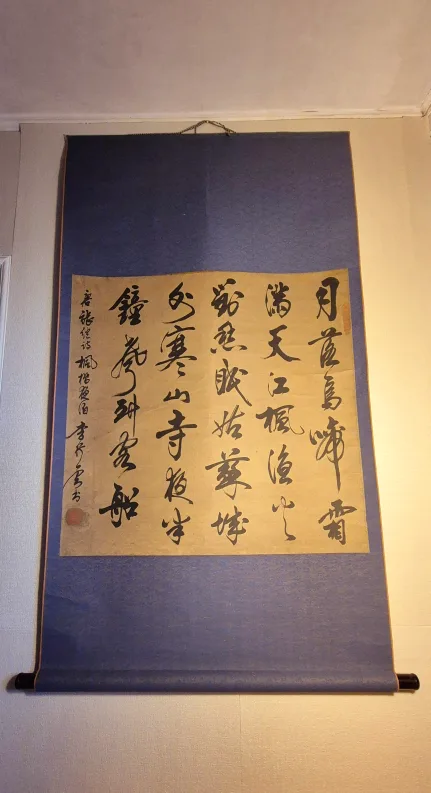 月落烏啼霜
滿天江楓漁火
對愁眠姑蘇城
外寒山寺夜半
鐘聲到客船
唐張繼詩楓橋夜泊